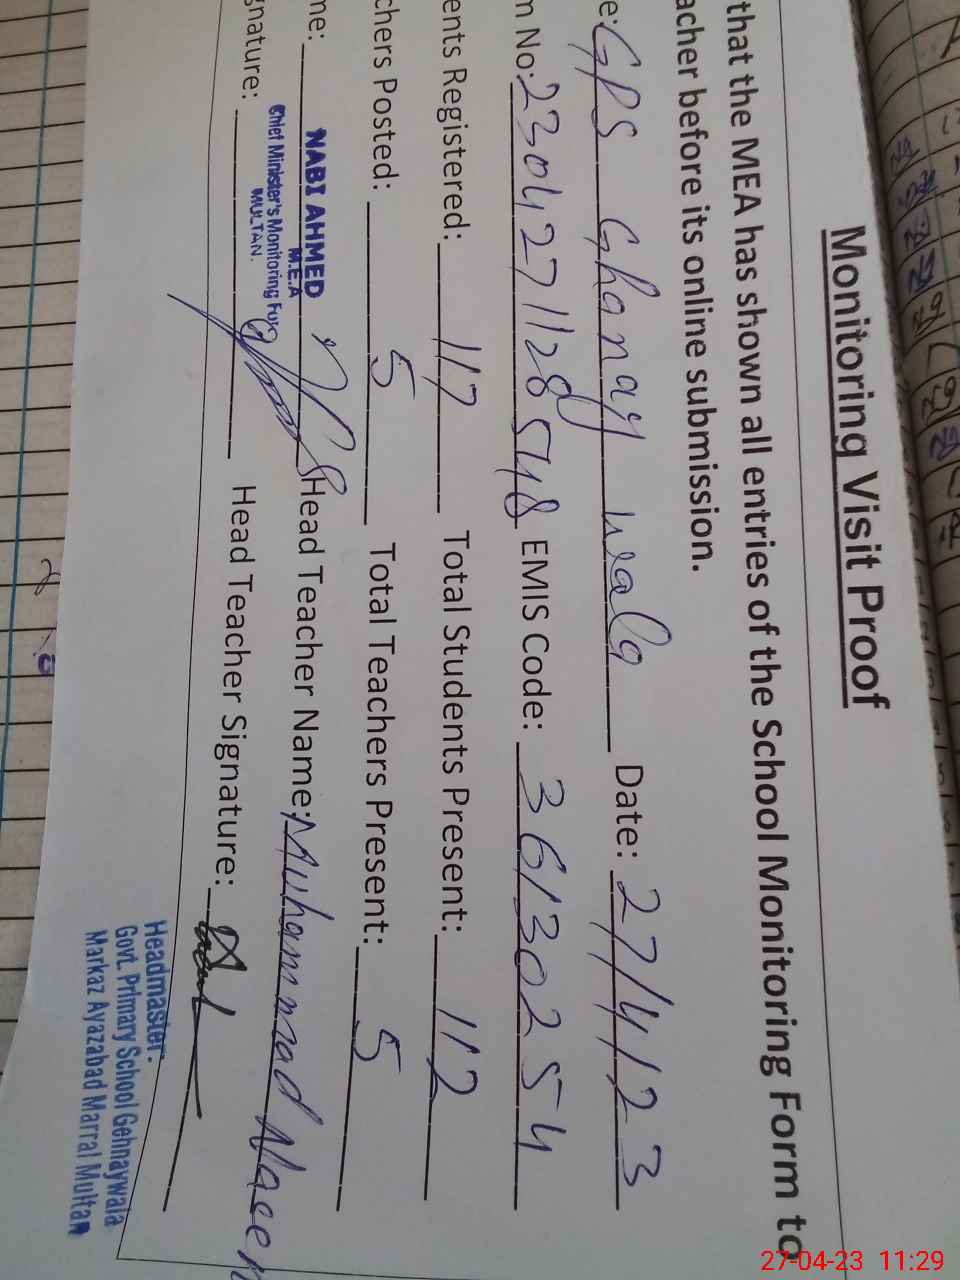 Monitoring Visit Proof
that the MEA has shown all entries of the School Monitoring Form to
acher before its online submission.
e: GPS Ghanay wala Date: 27/4/23
m No: 230427112858548 EMIS Code: 36130254
ents Registered: 117 Total Students Present: 112
chers Posted: 5 Total Teachers Present: 5
me: NABI AHMED Head Teacher Name: Muhammad Naeem
M.E.A
gnature: Chief Minister's Monitoring For Head Teacher Signature:
MULTAN.
Headmaster.
Govt. Primary School Gehnaywala
Markaz Ayazabad Marral Multan
27-04-23 11:29